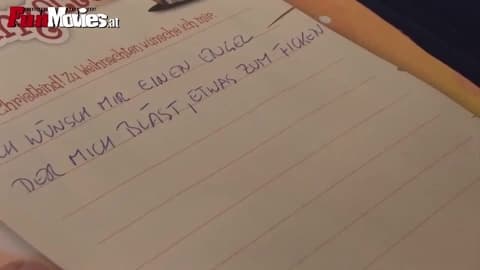 FunMovies.at
Christkind! Zu Weihnachten wünsche ich mir:
CH WÜNSCH MIR EINEN ENGEL
DER MICH BLÄST, ETWAS ZUM FICKEN